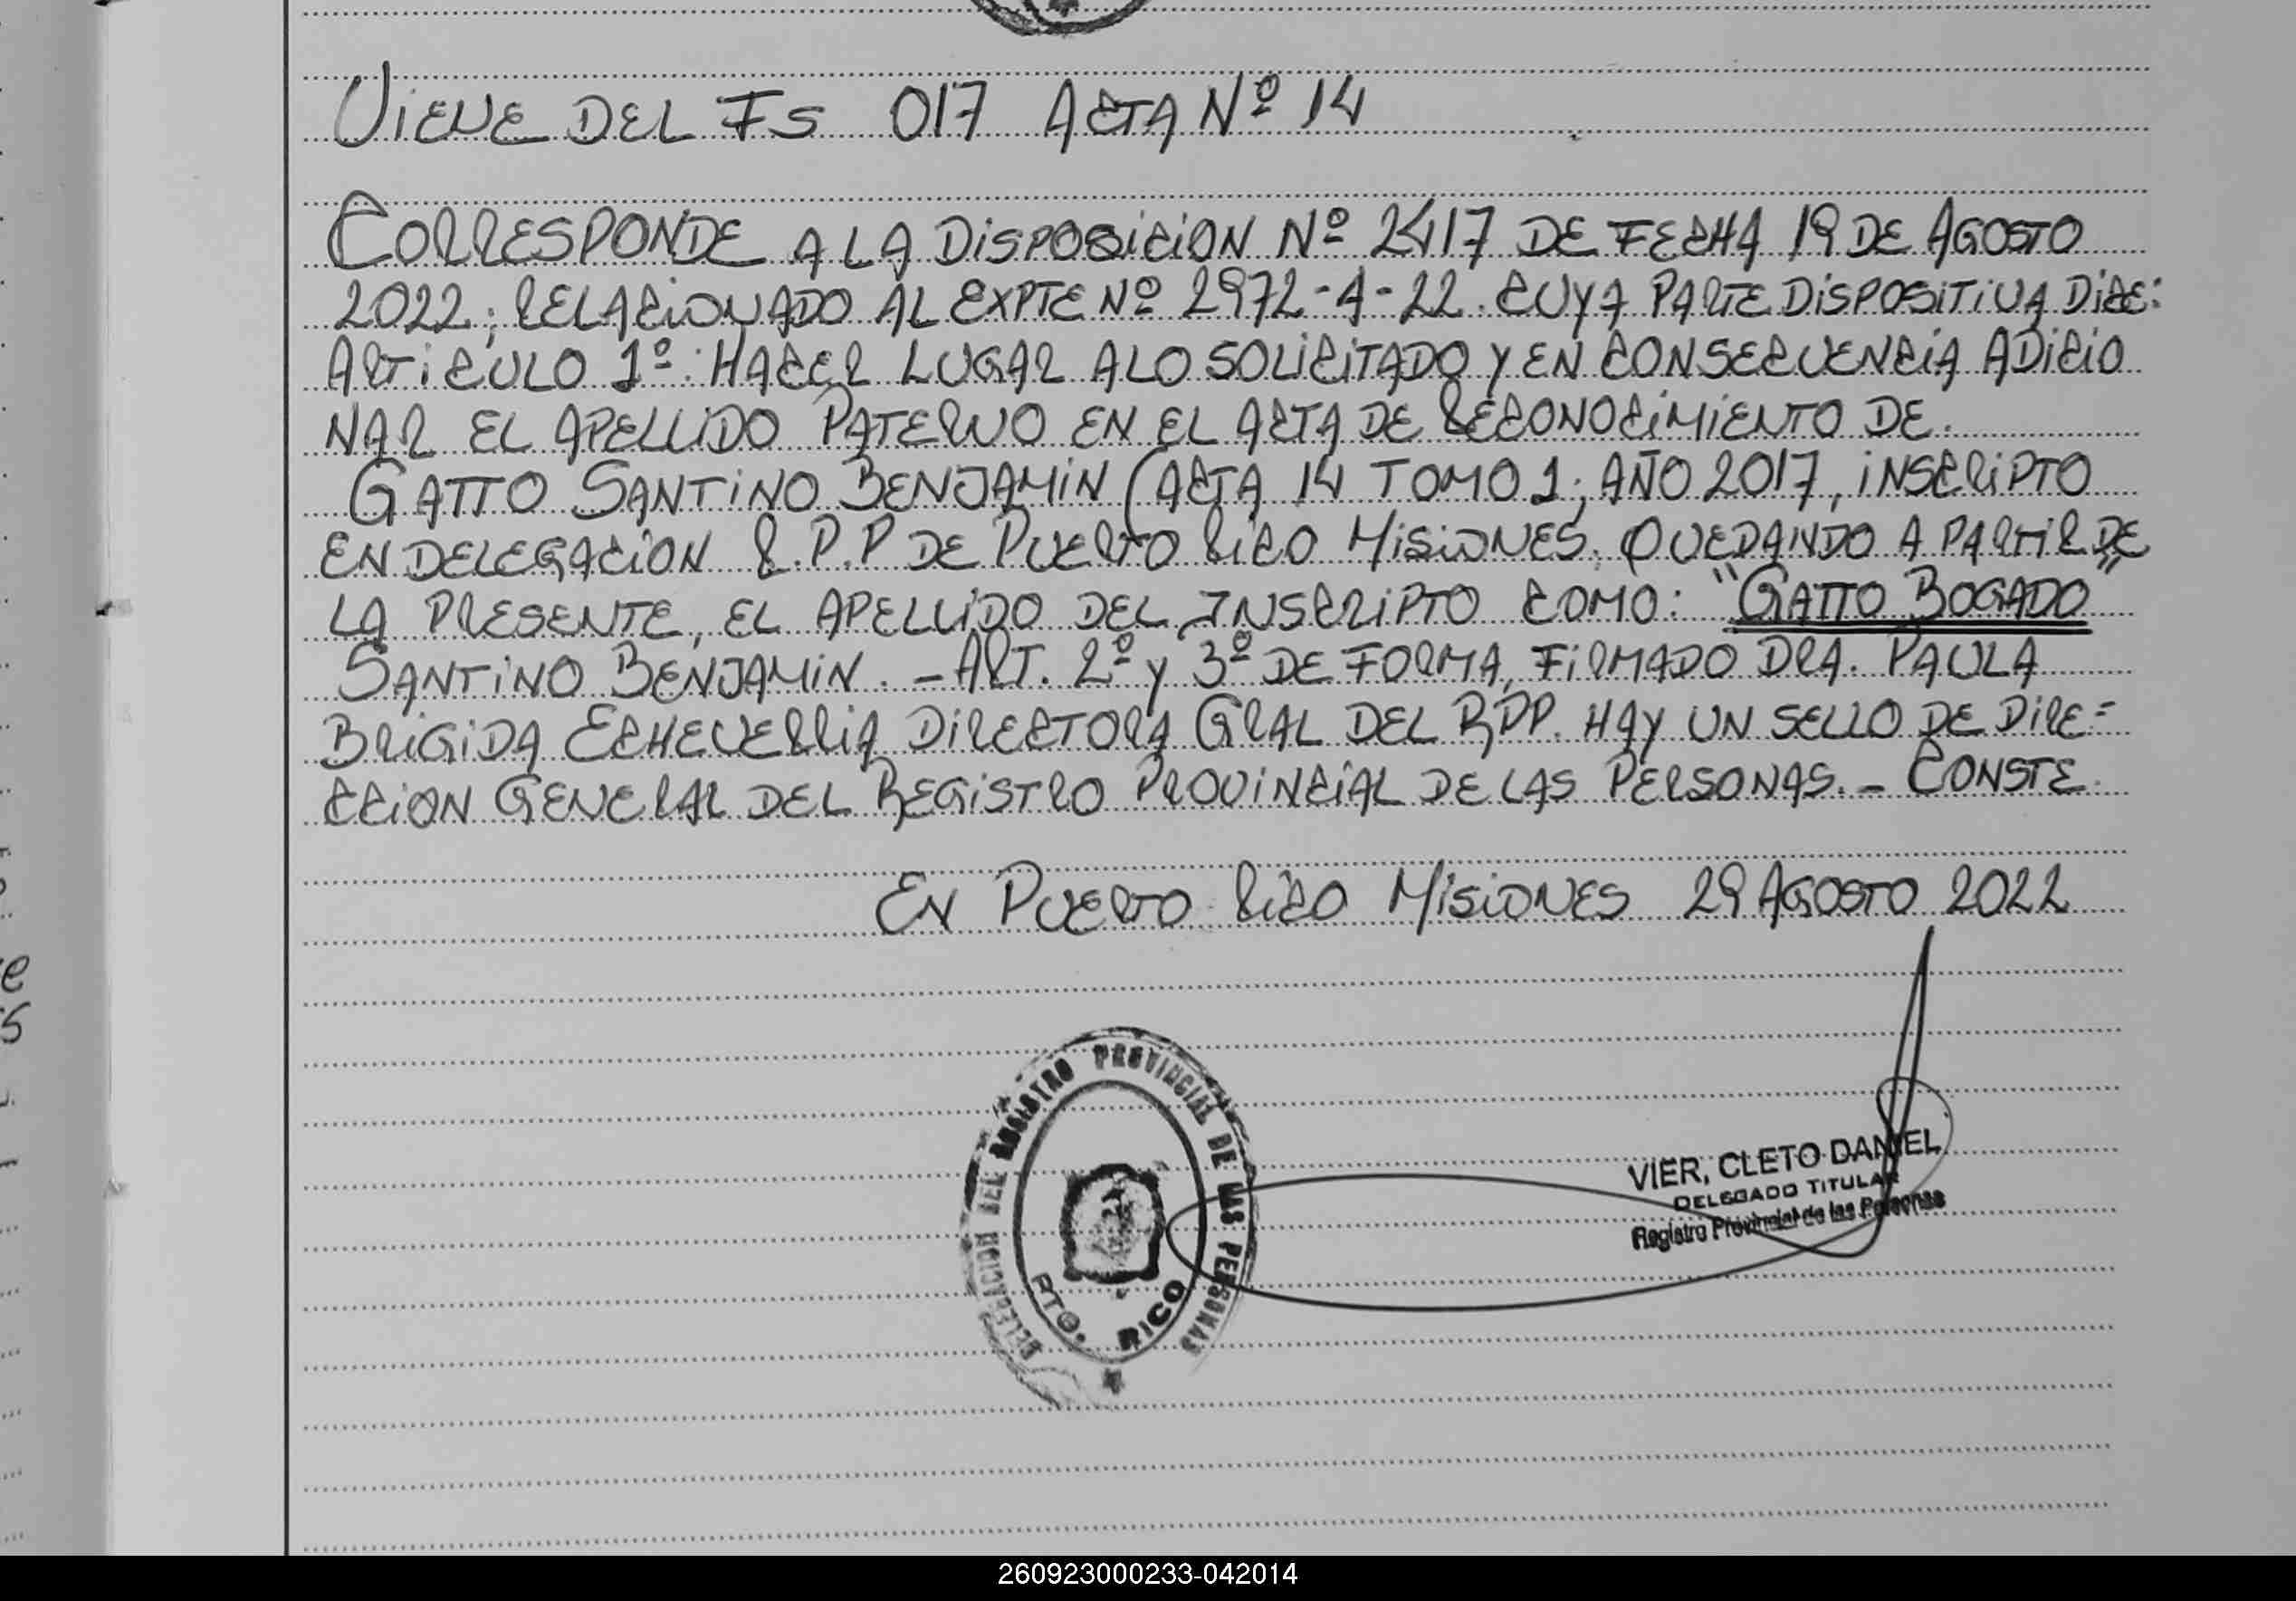 VIENE DEL FS 017 ACTA Nº 14
CORRESPONDE A LA DISPOSICION Nº 2417 DE FECHA 19 DE AGOSTO
2022; RELACIONADO AL EXPTE Nº 2972-A-22. CUYA PARTE DISPOSITIVA DICE:
ARTICULO 1º: HACER LUGAR A LO SOLICITADO Y EN CONSECUENCIA ADICIO
NAR EL APELLIDO PATERNO EN EL ACTA DE RECONOCIMIENTO DE.
GATTO SANTINO BENJAMIN (ACTA 14 TOMO 1; AÑO 2017, INSCRIPTO
EN DELEGACION R.P.P DE PUERTO RICO MISIONES. QUEDANDO A PARTIR DE
LA PRESENTE, EL APELLIDO DEL INSCRIPTO COMO: "GATTO BOGADO"
SANTINO BENJAMIN. - ART. 2º Y 3º DE FORMA, FIRMADO DRA. PAULA
BRIGIDA ECHEVERRIA DIRECTORA GRAL DEL RPP. HAY UN SELLO DE DIRE=
CCION GENERAL DEL REGISTRO PROVINCIAL DE LAS PERSONAS. - CONSTE.
EN PUERTO RICO MISIONES 29 AGOSTO 2022
DELEGACION DEL REGISTRO PROVINCIAL DE LAS PERSONAS
PTO. RICO
VIER, CLETO DANIEL
DELEGADO TITULAR
Registro Provincial de las Personas
260923000233-042014